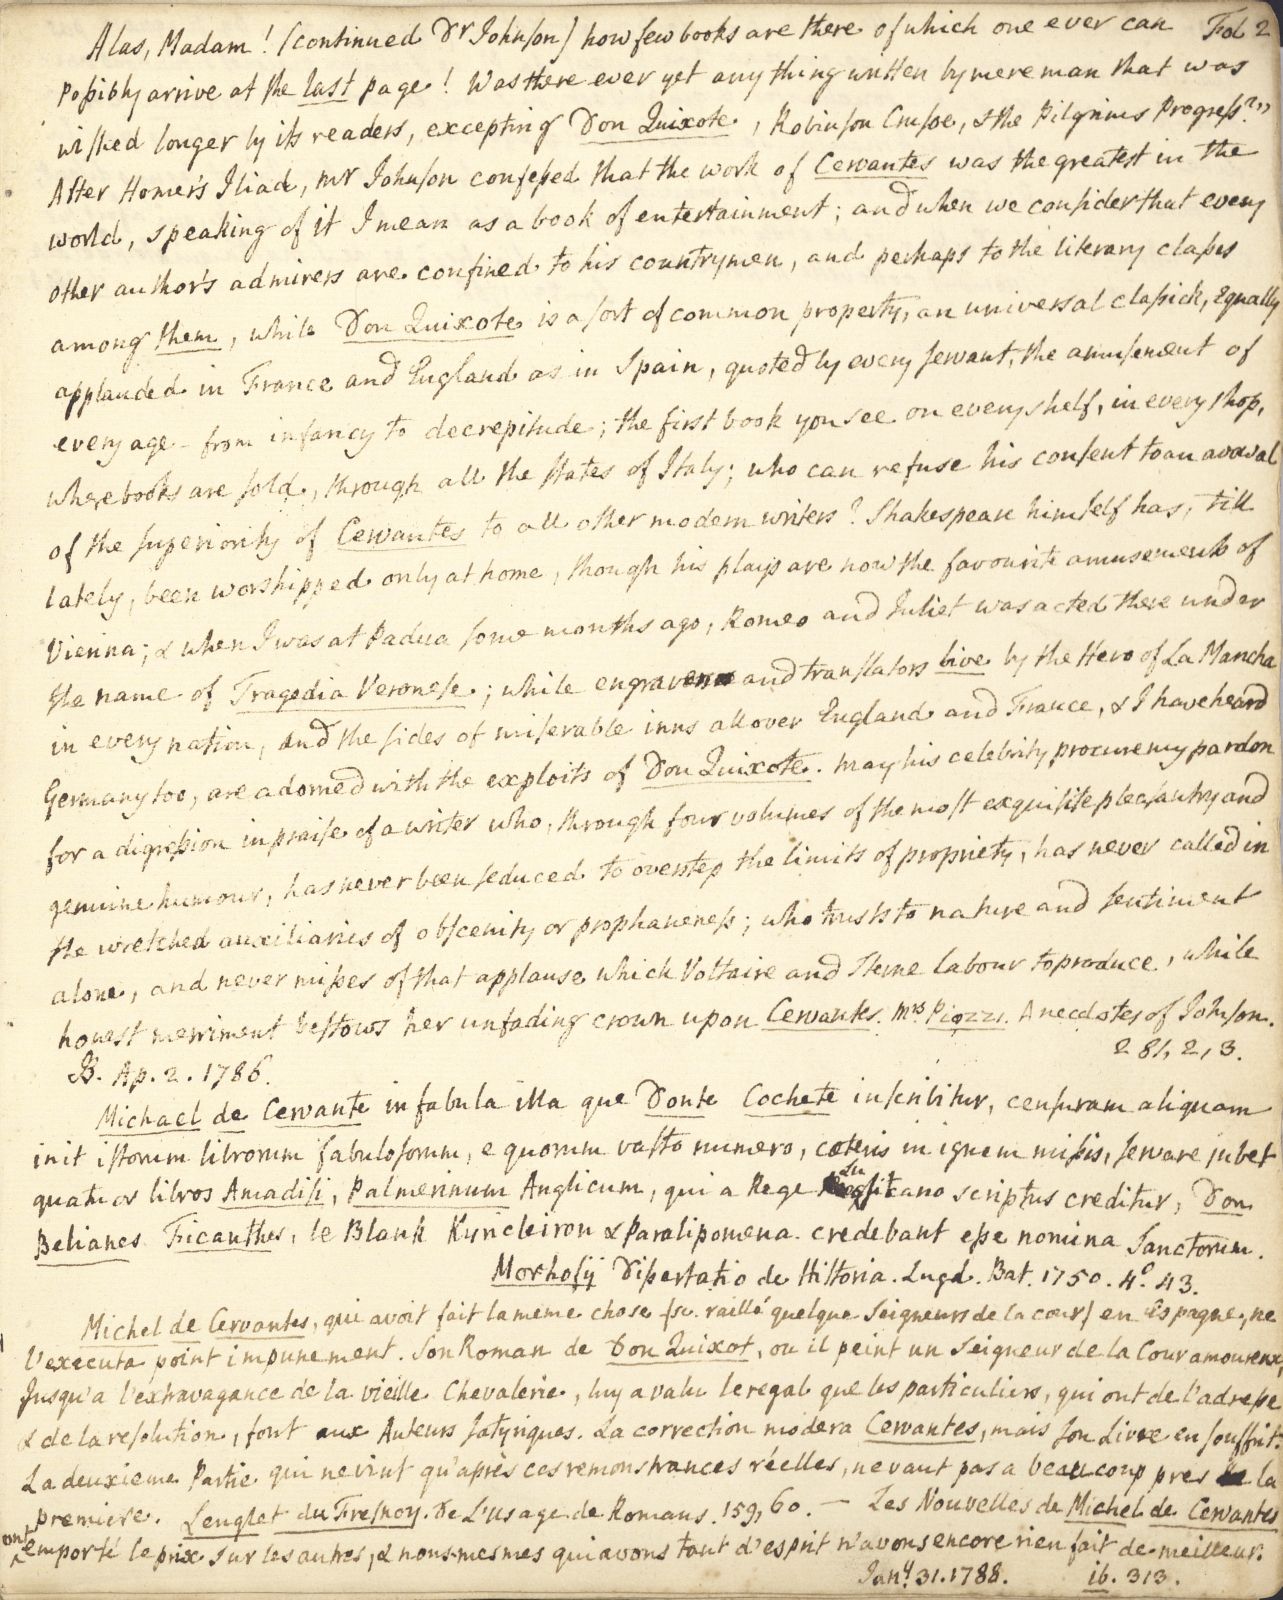 Alas, Madam! (continued Dr Johnson) how few books are there of which one ever can Fol 2
possibly arrive at the last page! Was there ever yet any thing written by mere man that was
wished longer by its readers, excepting Don Quixote, Robinson Crusoe, & the Pilgrims Progress?"
After Homer's Iliad, Mr Johnson confessed that the work of Cervantes was the greatest in the
world, speaking of it I mean as a book of entertainment; and when we consider that every
other author's admirers are confined to his countrymen, and perhaps to the literary classes
among them, while Don Quixote is a sort of common property, an universal classick, equally
applauded in France and England as in Spain, quoted by every servant, the amusement of
every age from infancy to decrepitude; the first book you see on every shelf, in every shop,
where books are sold, through all the states of Italy; who can refuse his consent to an avowal
of the superiority of Cervantes to all other modern writers? Shakespeare himself has, till
lately, been worshipped only at home, though his plays are now the favourite amusements of
Vienna; & when I was at Padua some months ago, Romeo and Juliet was acted there under
the name of Tragedia Veronese; while engravers and translators live by the Hero of La Mancha
in every nation, and the sides of miserable inns all over England and France, & I have heard
Germany too, are adorned with the exploits of Don Quixote. May his celebrity procure my pardon
for a digression in praise of a writer who, through four volumes of the most exquisite pleasantry and
genuine humour, has never been seduced to overstep the limits of propriety, has never called in
the wretched auxiliaries of obscenity or prophaneness; who trusts to nature and sentiment
alone, and never misses of that applause which Voltaire and Sterne labour to produce, while
honest merriment bestows her unfading crown upon Cervantes. Mrs Piozzi. Anecdotes of Johnson.
281, 2, 3.
B. Ap. 2. 1786.
Michael de Cervante in fabula illa que Donte Cochete inscribitur, censuram aliquam
init istorum librorum fabulosorum, e quorum vasto numero, cæteris in ignem missis, servare jubet
quatuor libros Amadisi, Palmerinum Anglicum, qui a Rege Lusitano scriptus creditur, Don
Belianes Ficanthes, le Blank Kyricleiron & Paralipomena. credebant esse nomina Sanctorum.
Morhofij Dissertatio de Historia. Lugd. Bat. 1750. 4o. 43.
Michel de Cervantes, qui avoit fait la meme chose (sc. raillé quelque Seigneurs de la cour) en Espagne, ne
l'executa point impunement. Son Roman de Don Quixot, ou il peint un Seigneur de la Cour amoureux,
Jusqu'a l'extravagance de la vieille Chevalerie, luy a valu le regal que les particuliers, qui ont de l'adresse
& de la resolution, font aux Auteurs satyriques. La correction modera Cervantes, mais son Livre en souffrit.
La deuxieme Partie qui ne vint qu'après ces remonstrances réelles, ne vaut pas a beaucoup pres la
premiere. Lenglet du Fresnoy. De L'usage de Romans. 159, 60. — Les Nouvelles de Michel de Cervantes
ont emporté le prix sur les autres, & nous-mesmes qui avons tant d'esprit n'avons encore rien fait de meilleur.
Jany. 31. 1788. ib. 313.